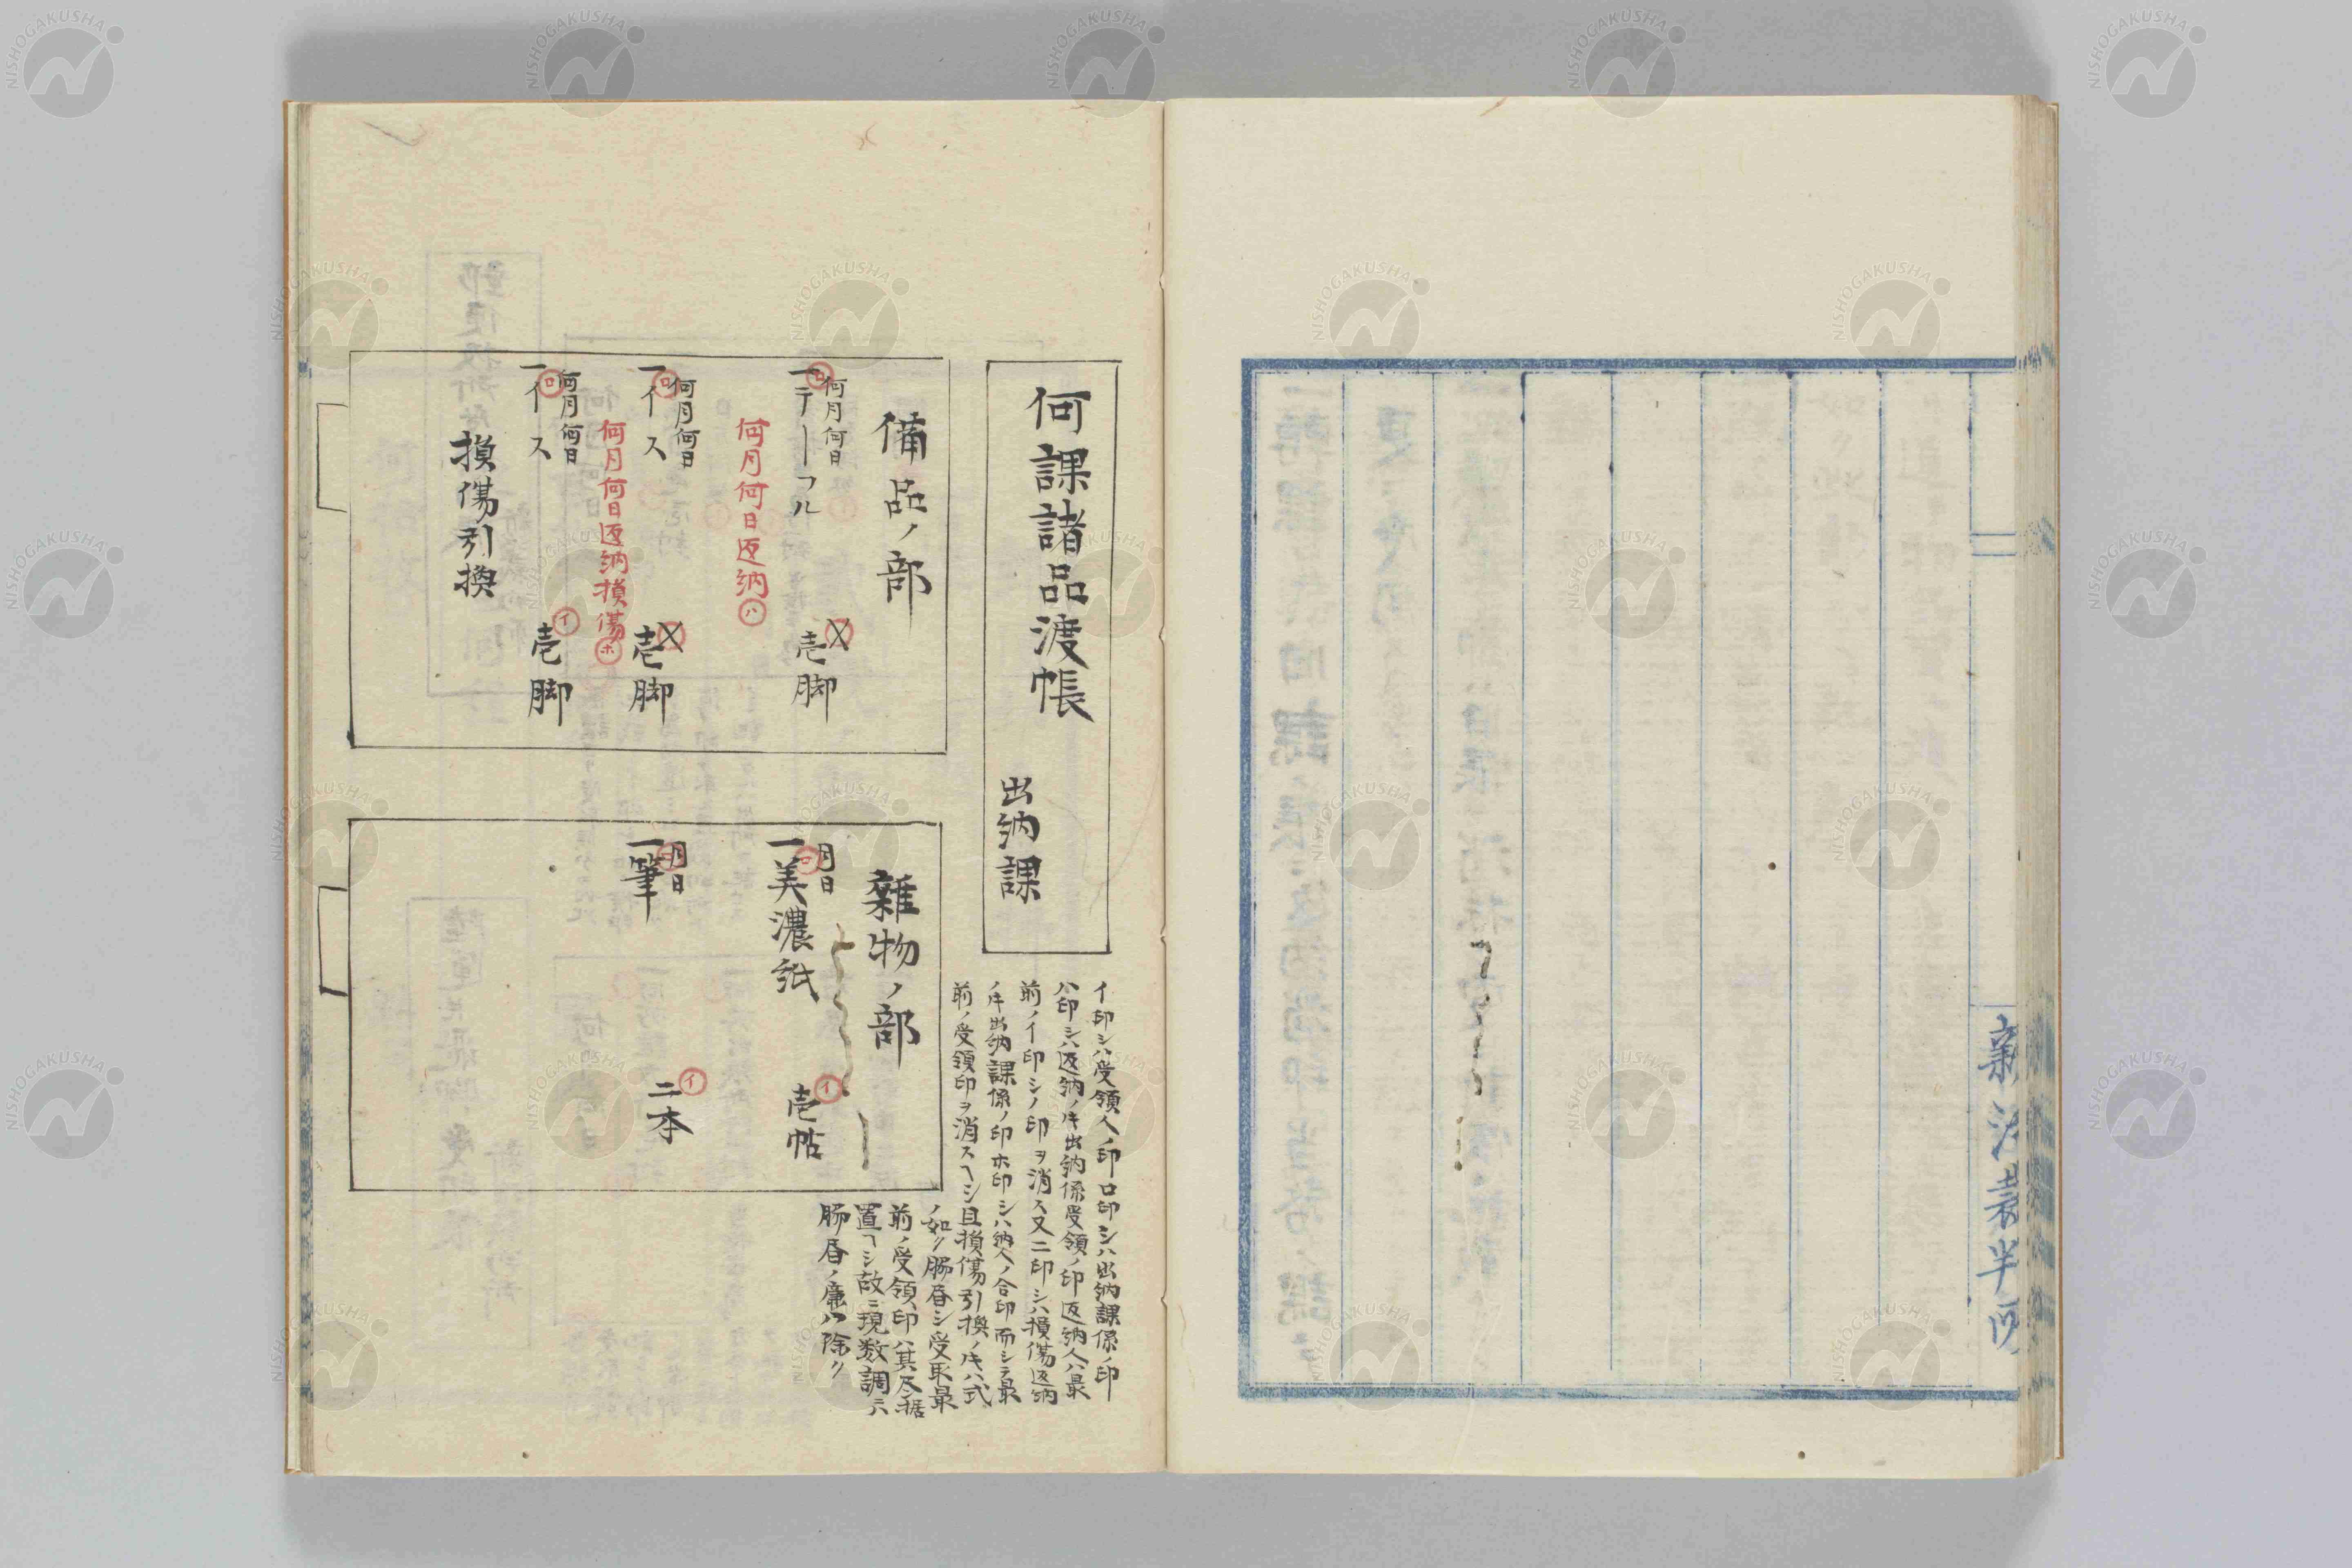 新治裁判所
何課諸品渡帳
出納課
イ印シハ受領人ノ印ロ印シハ出納課係ノ印
ハ印シハ返納ノ𪜈出納係受領ノ印返納人ハ最
前ノイ印シノ印ヲ消ス又ニ印シハ損傷返納
ノ𪜈出納課係ノ印ホ印シハ納人ノ合印而シテ最
前ノ受領印ヲ消スヘシ且損傷引換ノ𪜈ハ式
ノ如ク脇書シ受取最
前ノ受領印ハ其尽据
置ヘシ故ニ現数調ニハ
脇書ノ廉ハ除ク
備品ノ部
何月何日 ロ
一テーフル 壱脚
何月何日返納 ハ
何月何日 ロ
一イス 壱脚
何月何日返納損傷 ホ
何月何日 ロ
一イス 壱脚 イ
損傷引換
雑物ノ部
月日 ロ
一美濃紙 壱帖 イ
月日 ロ
一筆 二本 イ
NISHOGAKUSHA